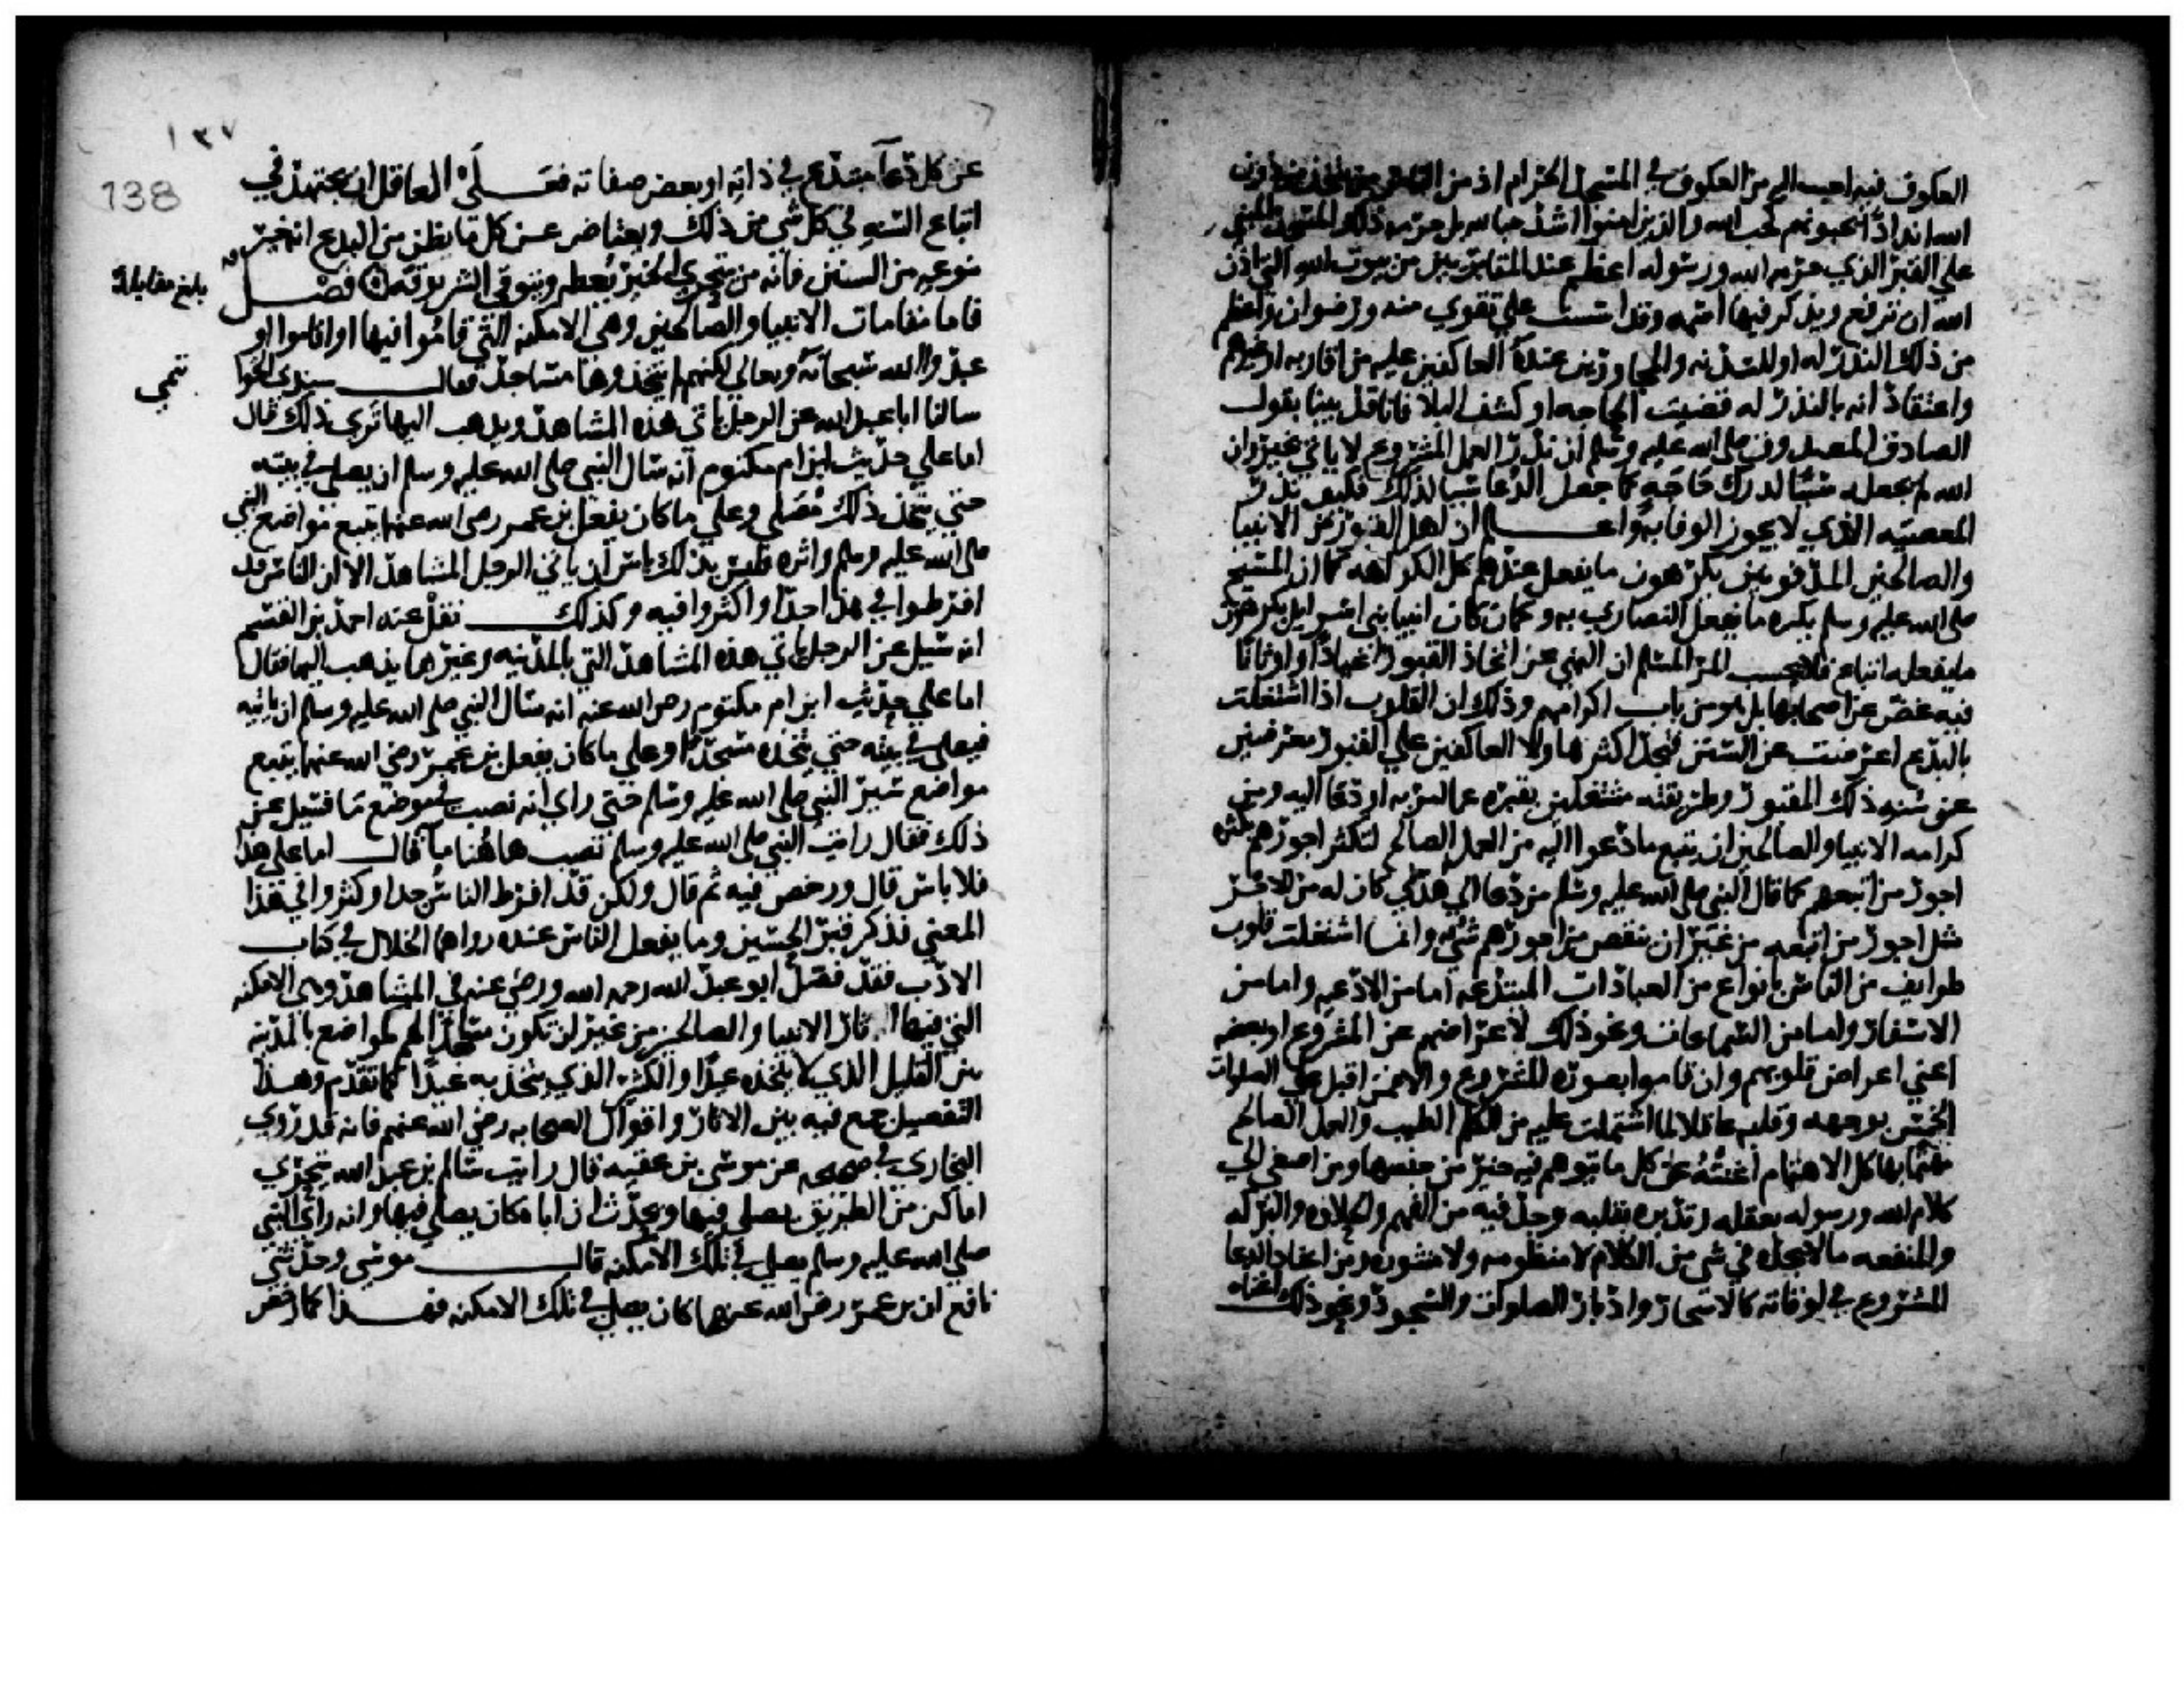 العكوف فيه احب اليه من العكوف في المسجد الحرام اذ من الناس من يتخذ من دون
الله اندادا يحبونهم كحب الله والذين امنوا اشد حبا لله بل حرمه ذلك المسجد المبني
علي القبر الذي حرمه الله ورسوله اعظم عند المقابريين من بيوت الله التي اذن
الله ان ترفع ويذكر فيها اسمه وقد اسست علي تقوي منه ورضوان واعظم
من ذلك النذر له او للسدنه والمجاورين عنده العاكفين عليه من اقاربه او غيرهم
واعتقاد انه بالنذر له قضيت الحاجه او كشف البلا فانا قد بينا بقول
الصادق المصدوق صلي الله عليه وسلم ان نذر العمل المشروع لا ياتي بخير وان
الله لم يجعله سببا لدرك حاجه كما جعل الدعا سببا لذلك فكيف نذر
المعصيه الذي لا يجوز الوفا به واعلم ان اهل القبور من الانبيا
والصالحين المدفونين يكرهون ما يفعل عندهم كل الكراهه كما ان المسيح
صلي الله عليه وسلم يكره ما يفعل النصاري به وكما كان انبيا بني اسرايل يكرهون
ما يفعله اتباع فلا يحسب المر المسلم ان النهي عن اتخاذ القبور اعيادا واوثانا
فيه غض عن اصحابها بل هو من باب اكرامهم وذلك ان القلوب اذا اشتغلت
بالبدع اعرضت عن السنن فتجد اكثر هاولا العاكفين علي القبور معرضين
عن سنه ذلك المقبور وطريقته مشتغلين بقبره عما امر به او دعا اليه ومن
كرامه الانبيا والصالحين ان يتبع ما دعوا اليه من العمل الصالح لتكثر اجورهم بكثره
اجور من اتبعهم كما قال النبي صلي الله عليه وسلم من دعا الي هدي كان له من الاجر
مثل اجور من اتبعه من غير ان ينقص من اجورهم شي وانما اشتغلت قلوب
طوايف من الناس بانواع من العبادات المبتدعه اما من الادعيه واما من
الاشعار واما من السماعات ونحو ذلك لاعراضهم عن المشروع او بعضه
اعني اعراض قلوبهم وان قاموا بصوره المشروع والا فمن اقبل علي الصلوات
الخمس بوجهه وقلبه عاقلا لما اشتملت عليه من الكلم الطيب والعمل الصالح
مهتما بها كل الاهتمام اغنته عن كل ما يتوهم فيه خير من جنسها ومن اصغي الي
كلام الله ورسوله بعقله وتدبره بقلبه وجد فيه من الفهم والحلاوه والبركه
والمنفعه ما لا يجده في شي من الكلام لا منظومه ولا منثوره ومن اعتاد الدعا
المشروع في اوقاته كالاسحار وادبار الصلوات والسجود ونحو ذلك اغناه
١٣٧
138
عن كل دعا مبتدع في ذاته او بعض صفاته فعلي العاقل ان يجتهد في
اتباع السنه في كل شي من ذلك ويعتاض عن كل ما يظن من البدع انه خير
بنوعه من السنن فانه من يتحري الخير يعطه ومن يتوقي الشر يوقه فصل
بلغ مقابلة
فاما مقامات الانبيا والصالحين وهي الامكنه التي قاموا فيها او اقاموا او
عبدوا الله سبحانه وتعالي لكنهم لم يتخذوها مساجد فقال سندي الخوا
تيمي
سالنا ابا عبد الله عن الرجل ياتي هذه المشاهد ويذهب اليها تري ذلك قال
اما علي حديث ابن ام مكتوم انه سال النبي صلي الله عليه وسلم ان يصلي في بيته
حتي يتخذ ذلك مصلي وعلي ما كان يفعل بن عمر رضي الله عنهما يتبع مواضع النبي
صلي الله عليه وسلم واثره فليس بذلك باس ان ياتي الرجل المشاهد الا ان الناس قد
افرطوا في هذا جدا واكثروا فيه وكذلك نقل عنه احمد بن القسم
انه سيل عن الرجل ياتي هذه المشاهد التي بالمدنيه وغيرها يذهب اليها فقال
اما علي حديث ابن ام مكتوم رضي الله عنه انه سال النبي صلي الله عليه وسلم ان ياتيه
فيصلي في بيته حتي يتخذه مسجدا وعلي ما كان يفعل بن عمر رضي الله عنهما يتبع
مواضع سير النبي صلي الله عليه وسلم حتي راي انه نصب لموضع ما فسيل عن
ذلك فقال رايت النبي صلي الله عليه وسلم نصب هاهنا ما قال اما علي هذا
فلا باس قال ورخص فيه ثم قال ولكن قد افرط الناس جدا وكثروا في هذا
المعني فذكر قبر الحسين وما يفعل الناس عنده رواهما الخلال في كتاب
الادب فقد فصل ابو عبد الله رحمه الله ورضي عنه في المشاهد وهي الامكنه
التي فيها اثار الانبيا والصالحين من غير ان تكون مساجد لهم كمواضع بالمدنيه
بين القليل الذي لا يتخذه عيدا والكثير الذي يتخذ به عيدا كما تقدم وهذا
التفصيل جمع فيه بين الاثار واقوال الصحابه رضي الله عنهم فانه قد روي
البخاري في صحيحه عن موسي بن عقبه قال رايت سالم بن عبد الله يتحري
اماكن من الطريق يصلي فيها ويحدث ان اباه كان يصلي فيها وانه راي النبي
صلي الله عليه وسلم يصلي في تلك الامكنه قال موسي وحدثني
نافع ان بن عمر رضي الله عنهما كان يصلي في تلك الامكنه فهذا كما رخص